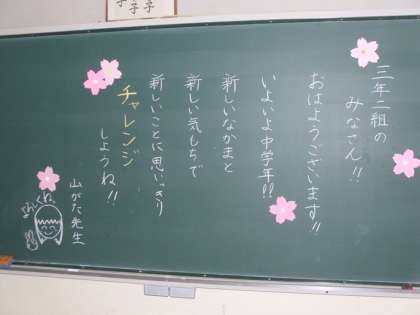 三年二組の
みなさん!!
おはようございます!!
いよいよ中学年!!
新しいなかまと
新しい気もちで
新しいことに思いっきり
チャレンジ
しようね!!
山がた先生
よろしくね